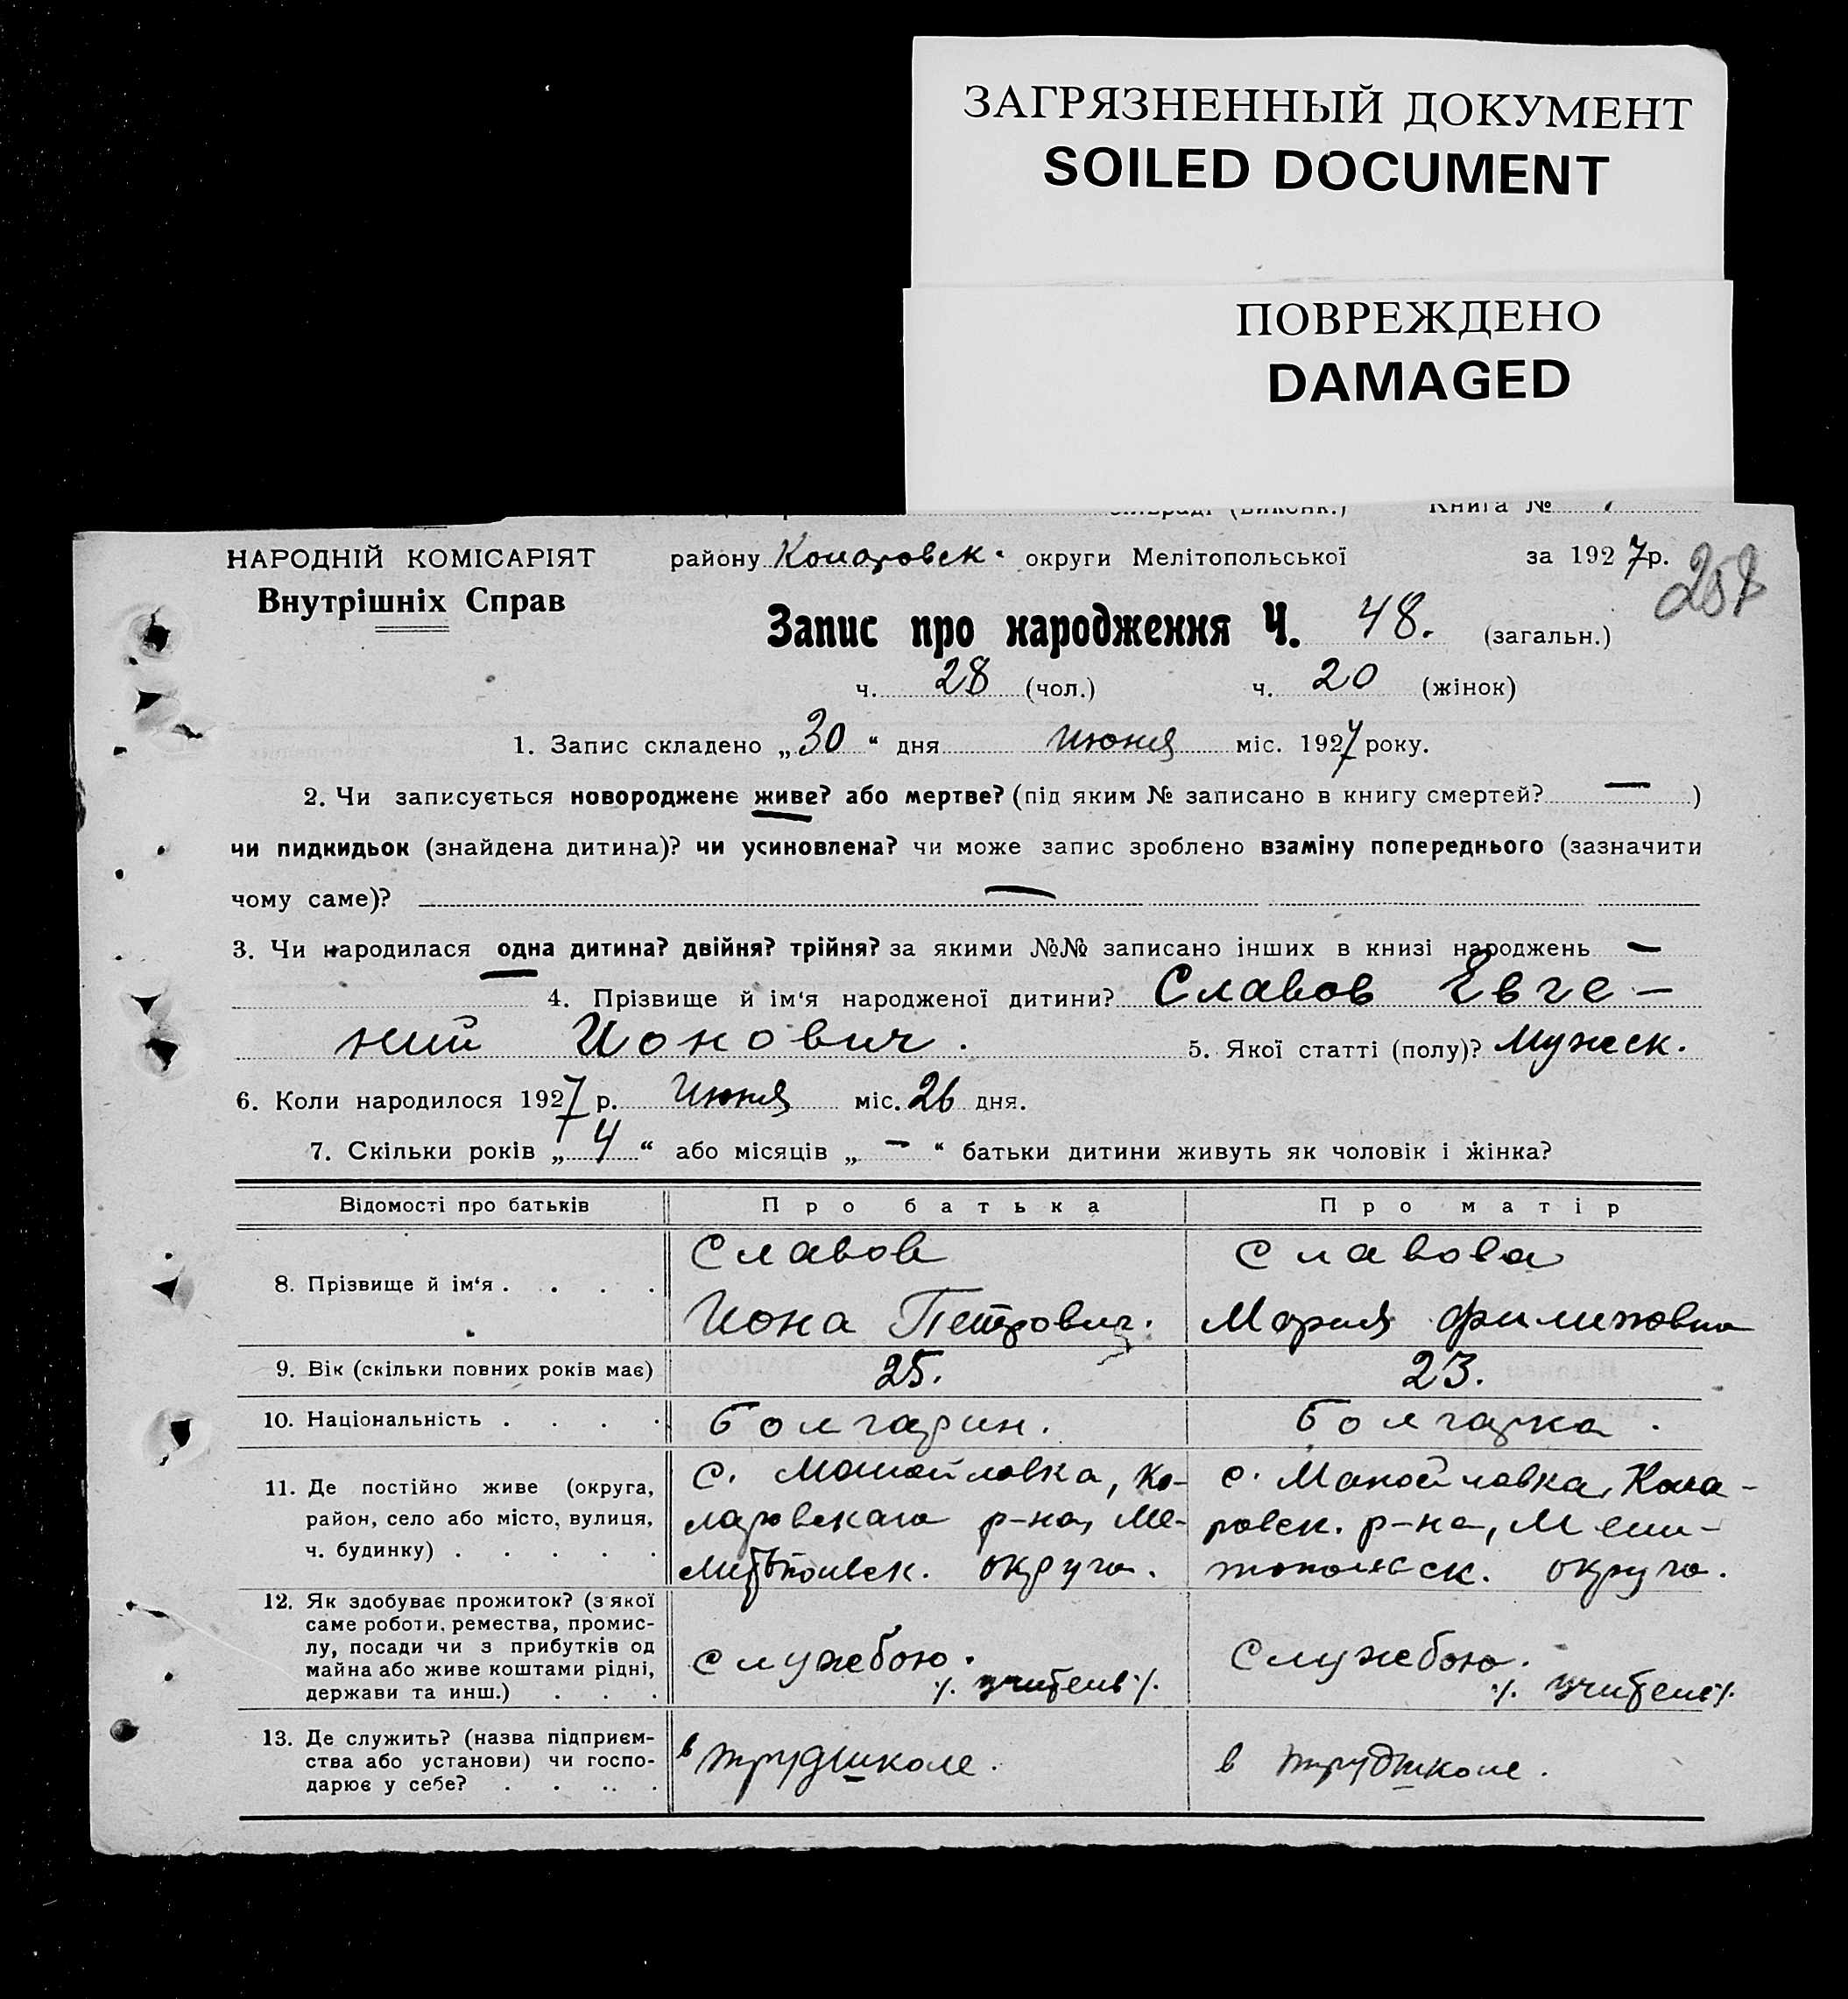 ЗАГРЯЗНЕННЫЙ ДОКУМЕНТ
SOILED DOCUMENT
ПОВРЕЖДЕНО
DAMAGED
Книга №
НАРОДНІЙ КОМІСАРІЯТ
Внутрішніх Справ
району Коларовск. округи Мелітопольської за 1927р.
Запис про народження Ч. 48. (загальн.)
ч. 28 (чол.) ч. 20 (жінок)
1. Запис складено „30“ дня июня міс. 1927 року.
2. Чи записується новороджене живе? або мертве? (під яким № записано в книгу смертей? — )
чи пидкидьок (знайдена дитина)? чи усиновлена? чи може запис зроблено взаміну попереднього (зазначити
чому саме)? —
3. Чи народилася одна дитина? двійня? трійня? за якими №№ записано інших в книзі народжень —
4. Прізвище й ім‘я народженої дитини? Славов Евге-
ний Ионович. 5. Якої статті (полу)? Мужеск.
6. Коли народилося 1927 р. Июня міс. 26 дня.
7. Скільки років „4“ або місяців „—“ батьки дитини живуть як чоловік і жінка?
Відомості про батьків Про батька Про матір
8. Прізвище й ім‘я . . . .
Славов
Иона Петрович.
Славова
Мария Филиповна
9. Вік (скільки повних років має) 25. 23.
10. Національність . . . . Болгарин. Болгарка.
11. Де постійно живе (округа,
район, село або місто, вулиця,
ч. будинку) . . . . .
С. Манойловка, Ко-
ларовскага р-на, Ме-
литопольск. округа.
с. Манойловка, Кола-
ровск. р-на, Мели-
топольск. округа.
12. Як здобуває прожиток? (з якої
саме роботи, ремества, промис-
лу, посади чи з прибутків од
майна або живе коштами рідні,
держави та инш.) . . .
Службою.
⁒ учитель ⁒
Службою.
⁒ учитель ⁒
13. Де служить? (назва підприєм-
ства або установи) чи госпо-
дарює у себе? . . . .
в трудшколе.
в трудшколе.